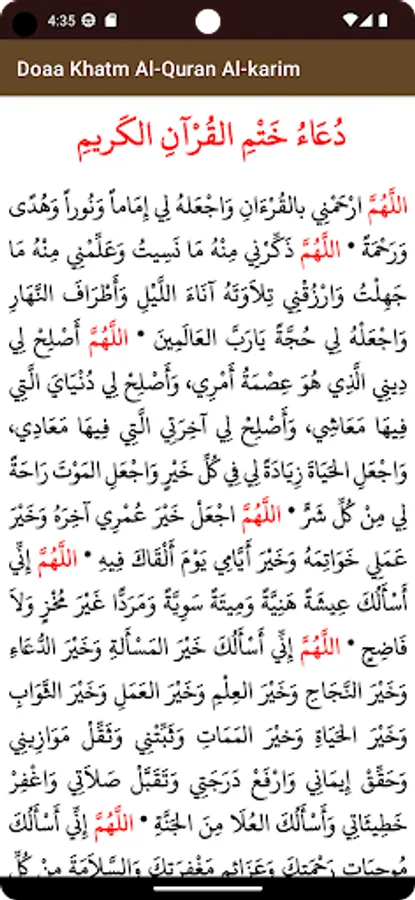 4:35
Doaa Khatm Al-Quran Al-karim
دُعَاءُ خَتْمِ القُرْآنِ الكَريمِ
اللَّهُمَّ ارْحَمْنِي بالقُرْءَانِ وَاجْعَلهُ لِي إِمَاماً وَنُوراً وَهُدًى
وَرَحْمَةً • اللَّهُمَّ ذَكِّرْنِي مِنْهُ مَا نَسِيتُ وَعَلِّمْنِي مِنْهُ مَا
جَهِلْتُ وَارْزُقْنِي تِلاَوَتَهُ آنَاءَ اللَّيْلِ وَأَطْرَافَ النَّهَارِ
وَاجْعَلْهُ لِي حُجَّةً يَارَبَّ العَالَمِينَ • اللَّهُمَّ أَصْلِحْ لِي
دِينِي الَّذِي هُوَ عِصْمَةُ أَمْرِي، وَأَصْلِحْ لِي دُنْيَايَ الَّتِي
فِيهَا مَعَاشِي، وَأَصْلِحْ لِي آخِرَتِي الَّتِي فِيهَا مَعَادِي،
وَاجْعَلِ الحَيَاةَ زِيَادَةً لِي فِي كُلِّ خَيْرٍ وَاجْعَلِ المَوْتَ رَاحَةً
لِي مِنْ كُلِّ شَرٍّ • اللَّهُمَّ اجْعَلْ خَيْرَ عُمْرِي آخِرَهُ وَخَيْرَ
عَمَلِي خَوَاتِمَهُ وَخَيْرَ أَيَّامِي يَوْمَ أَلْقَاكَ فِيهِ • اللَّهُمَّ إِنِّي
أَسْأَلُكَ عِيشَةً هَنِيَّةً وَمِيتَةً سَوِيَّةً وَمَرَدًّا غَيْرَ مُخْزٍ وَلاَ
فَاضِحٍ • اللَّهُمَّ إِنِّي أَسْأَلُكَ خَيْرَ المَسْأَلةِ وَخَيْرَ الدُّعَاءِ
وَخَيْرَ النَّجَاحِ وَخَيْرَ العِلْمِ وَخَيْرَ العَمَلِ وَخَيْرَ الثَّوَابِ
وَخَيْرَ الحَيَاةِ وَخيْرَ المَمَاتِ وَثَبِّتْنِي وَثَقِّلْ مَوَازِينِي
وَحَقِّقْ إِيمَانِي وَارْفَعْ دَرَجَتِي وَتَقَبَّلْ صَلاَتِي وَاغْفِرْ
خَطِيئَاتِي وَأَسْأَلُكَ العُلَا مِنَ الجَنَّةِ • اللَّهُمَّ إِنِّي أَسْأَلُكَ
مُوجِبَاتِ رَحْمَتِكَ وَعَزَائِمِ مَغْفِرَتِكَ وَالسَّلاَمَةَ مِنْ كُلِّ